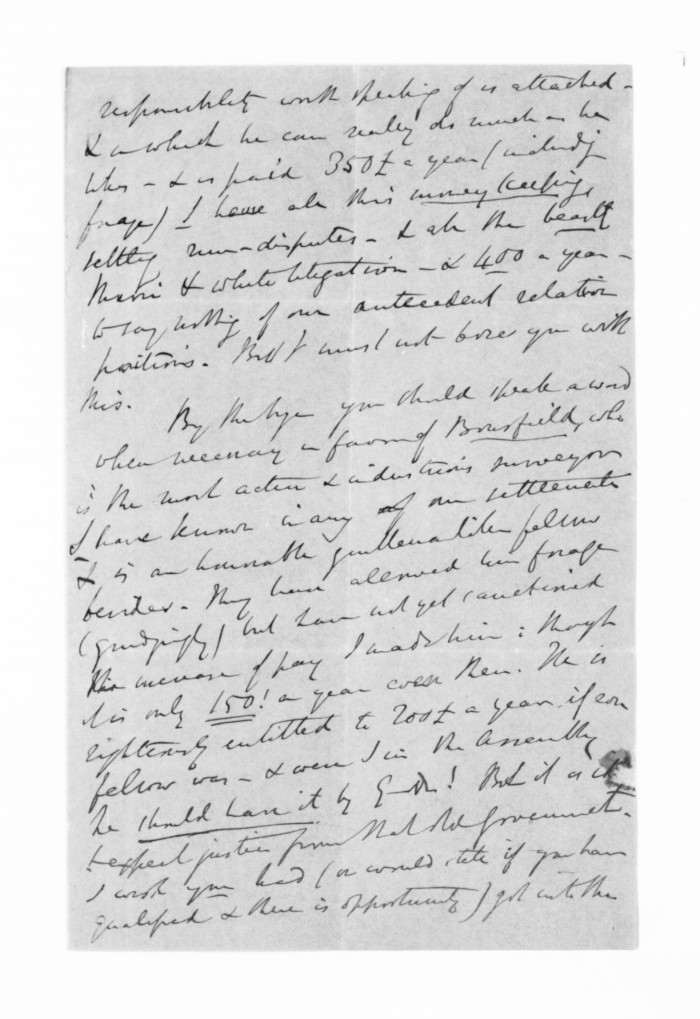 responsibility worth speaking of is attached -
& in which he can really do much as he
likes - & is paid 350£ a year (including
forage) I have all this money keeping,
settling run-disputes - & all the beastly
Maori & white litigation - & 400 a year -
to say nothing of our antecedent relation
positions. But I must not bore you with
this.
By the bye you should speak a word
when necessary in favour of Bousfield, who
is the most active & industrious surveyor
I have known in any of our settlements
& is an honourable gentlemanlike fellow
besides - They have allowed him forage
(grudgingly) but have not yet sanctioned
the increase of pay I made him : though
it is only 150! a year even then. He is
righteously entitled to 200£ a year if ever
fellow was - & were I in the Assembly
he should have it by G-d! But it is
to expect justice from that old Government -
I wish you had (or would stete if you have
qualified & there is opportunity) got into the